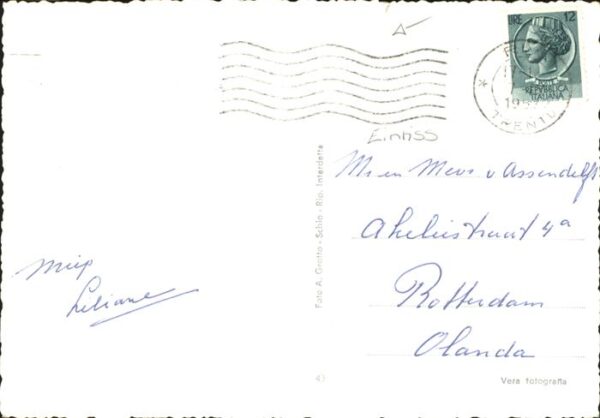 LIRE 12
REPUBBLICA
ITALIANA
TRENTO
Einriss
Foto A. Grotto - Schio - Rip. Interdetta
Mr en Mevr v Assendelft
Rotterdam
Olanda
Miep
Liliane
43
Vera fotografia